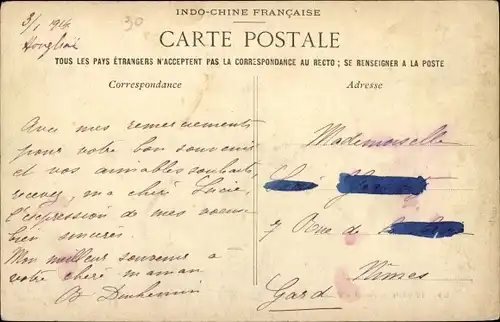 INDO-CHINE FRANÇAISE
CARTE POSTALE
TOUS LES PAYS ÉTRANGERS N'ACCEPTENT PAS LA CORRESPONDANCE AU RECTO ; SE RENSEIGNER A LA POSTE
Correspondance
Adresse
30
3/1
Avec mes remerciements
pour votre bon souvenir
et vos aimables souhaits,
recevez, ma chère Lucie,
l'expression de mes voeux
bien sincères.
Mon meilleur souvenir à
votre chère maman
Mademoiselle
7 Rue de
Nîmes
Gard